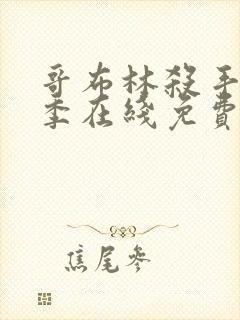 哥布林殺手
季在綫免費
焦尾參